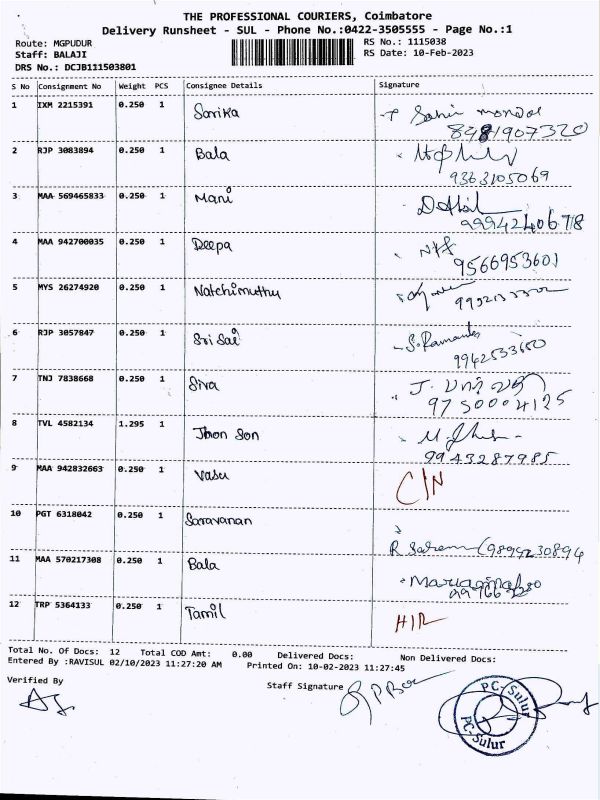 THE PROFESSIONAL COURIERS, Coimbatore
Delivery Runsheet - SUL - Phone No.:0422-3505555 - Page No.:1
Route: MGPUDUR
Staff: BALAJI
DRS No.: DCJB111503801
RS No.: 1115038
RS Date: 10-Feb-2023
S No Consignment No Weight PCS Consignee Details Signature
1 IXM 2215391 0.250 1 Sarika
8481907320
2 RJP 3083894 0.250 1 Bala
9363105069
3 MAA 569465833 0.250 1 Mani
9994240678
4 MAA 942700035 0.250 1 Deepa
9566953601
5 MYS 26274920 0.250 1 Natchimuthu
6 RJP 3057847 0.250 1 Sri Sai S. Ramanathan
9942533650
7 TNJ 7838668 0.250 1 Siva J. பார்வதி
9750004125
8 TVL 4582134 1.295 1 Jhon Son
9943287985
9 MAA 942832663 0.250 1 Vasu C/N
10 PGT 6318042 0.250 1 Saravanan
9894230894
11 MAA 570217308 0.250 1 Bala
12 TRP 5364133 0.250 1 Tamil
Total No. Of Docs: 12 Total COD Amt: 0.00 Delivered Docs: Non Delivered Docs:
Entered By :RAVISUL 02/10/2023 11:27:20 AM Printed On: 10-02-2023 11:27:45
Verified By Staff Signature
PC-Sulur
PC-Sulur